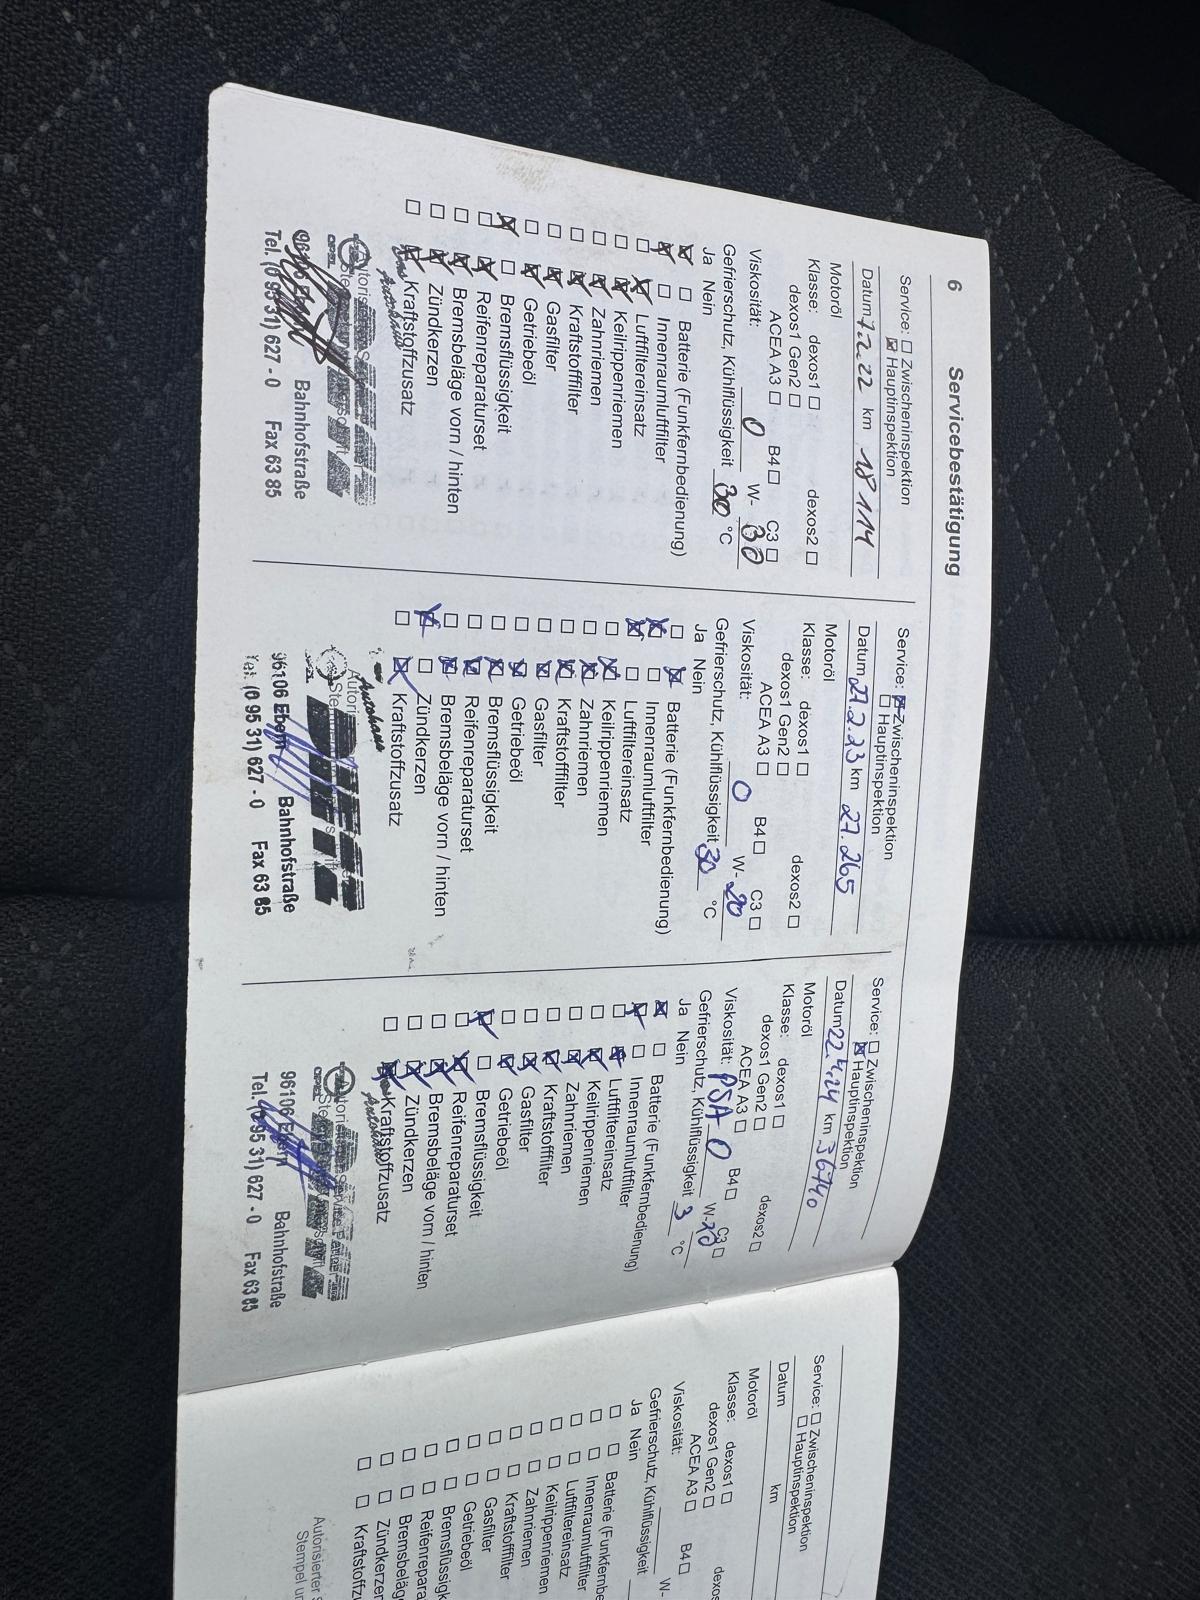 6 Servicebestätigung
Service: Zwischeninspektion
Hauptinspektion
Datum 7.2.22 km 18114
Motoröl
Klasse: dexos1 dexos2
dexos1 Gen2
ACEA A3 B4 C3
Viskosität: 0 W- 30
Gefrierschutz, Kühlflüssigkeit 30 °C
Ja Nein
Batterie (Funkfernbedienung)
Innenraumluftfilter
Luftfiltereinsatz
Keilrippenriemen
Zahnriemen
Kraftstofffilter
Gasfilter
Getriebeöl
Bremsflüssigkeit
Reifenreparaturset
Bremsbeläge vorn / hinten
Zündkerzen
Kraftstoffzusatz
Autohaus
Bahnhofstraße
Tel. (0 95 31) 627 - 0 Fax 63 85
Service: Zwischeninspektion
Hauptinspektion
Datum 27.2.23 km 27.265
Motoröl
Klasse: dexos1 dexos2
dexos1 Gen2
ACEA A3 B4 C3
Viskosität: 0 W- 20
Gefrierschutz, Kühlflüssigkeit 30 °C
Ja Nein
Batterie (Funkfernbedienung)
Innenraumluftfilter
Luftfiltereinsatz
Keilrippenriemen
Zahnriemen
Kraftstofffilter
Gasfilter
Getriebeöl
Bremsflüssigkeit
Reifenreparaturset
Bremsbeläge vorn / hinten
Zündkerzen
Kraftstoffzusatz
Autohaus
96106 Ebern Bahnhofstraße
Tel. (0 95 31) 627 - 0 Fax 63 85
Service: Zwischeninspektion
Hauptinspektion
Datum 22.4.24 km 36740
Motoröl
Klasse: dexos1 dexos2
dexos1 Gen2
ACEA A3 B4 C3
Viskosität: PSA 0 W-
Gefrierschutz, Kühlflüssigkeit 3 °C
Ja Nein
Batterie (Funkfernbedienung)
Innenraumluftfilter
Luftfiltereinsatz
Keilrippenriemen
Zahnriemen
Kraftstofffilter
Gasfilter
Getriebeöl
Bremsflüssigkeit
Reifenreparaturset
Bremsbeläge vorn / hinten
Zündkerzen
Kraftstoffzusatz
Autohaus
96106 Ebern Bahnhofstraße
Tel. (0 95 31) 627 - 0 Fax 63 85
Service: Zwischeninspektion
Hauptinspektion
Datum km
Motoröl
Klasse: dexos1 dexos
dexos1 Gen2
ACEA A3 B4
Viskosität: W-
Gefrierschutz, Kühlflüssigkeit
Ja Nein
Batterie (Funkfernbe
Innenraumluftfilter
Luftfiltereinsatz
Keilrippenriemen
Zahnriemen
Kraftstofffilter
Gasfilter
Getriebeöl
Bremsflüssigk
Reifenrepara
Bremsbeläg
Zündkerzen
Kraftstoffzu
Autorisierter S
Stempel un